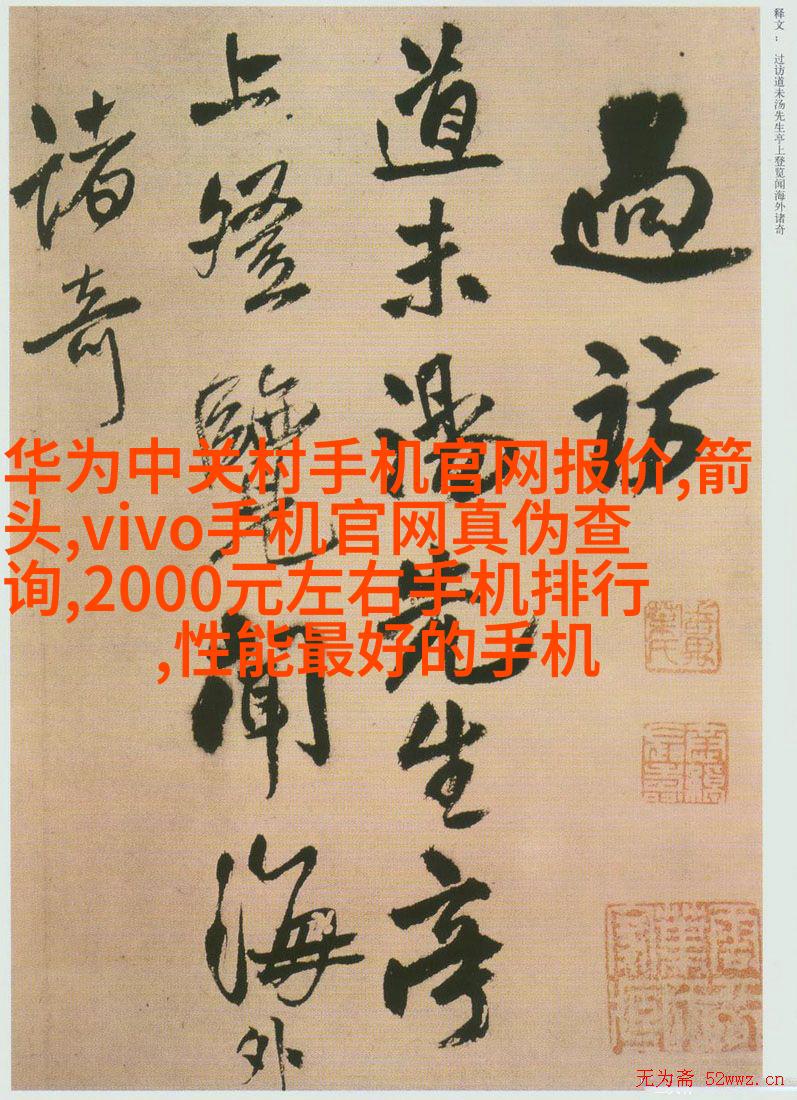 释文：　过访道未汤先生亭上登览闻海外诸奇
過訪
道未湯先生亭
上登覽聞海外
諸奇
华为中关村手机官网报价,箭
头,vivo手机官网真伪查
询,2000元左右手机排行
,性能最好的手机
无为斋 52wwz.cn